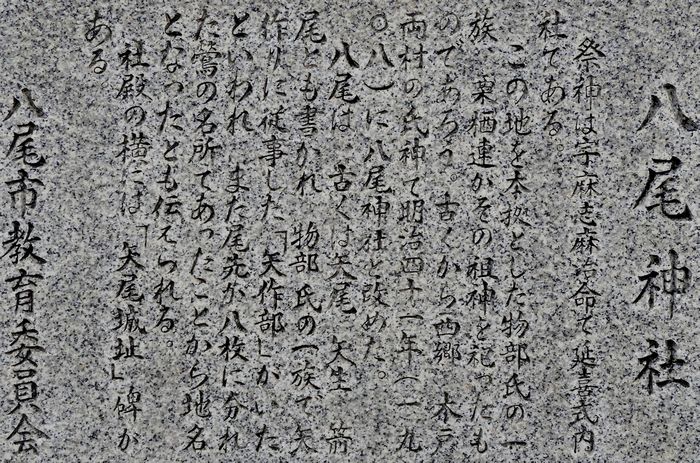 八尾神社
祭神は宇麻志麻治命で延喜式内
社である。
この地を本拠とした物部氏の一
族 栗栖連がその祖神を祀ったも
のであろう。古くから西郷 木戸
両村の氏神で明治四十一年(一九
〇八)に八尾神社と改めた。
八尾は、古くは矢尾 矢生 箭
尾とも書かれ 物部氏の一族で矢
作りに従事した「矢作部」がいた
といわれ、また尾先が八枚に分れ
た鶯の名所であったことから地名
となったとも伝えられる。
社殿の横には「矢尾城址」碑が
ある。
八尾市教育委員会